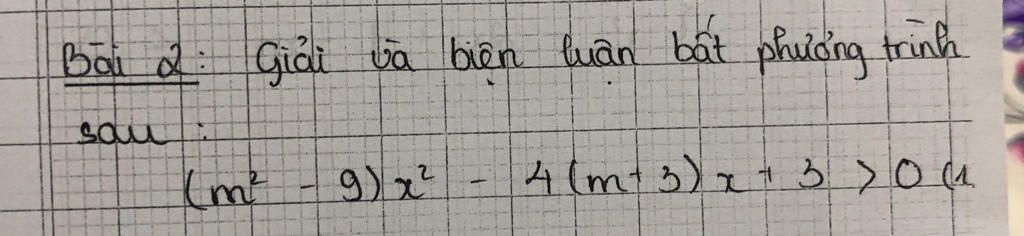 Bài 2: Giải và biện luận bất phương trình
sau:
(m² - 9)x² - 4(m+3)x + 3 > 0 (1